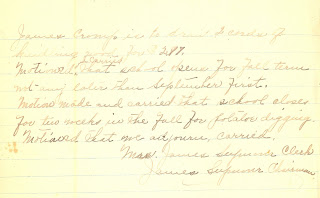 James Cromp is to draw 2 cords of
building wood for $2.87.
Motioned & carried that school opens for fall term
not any later than September first.
Motion made and carried that school closes
for two weeks in the fall for potatoe digging.
Motioned that we adjourn, carried.
Mrs. James Supernor Clerk
James Supernor Chairman